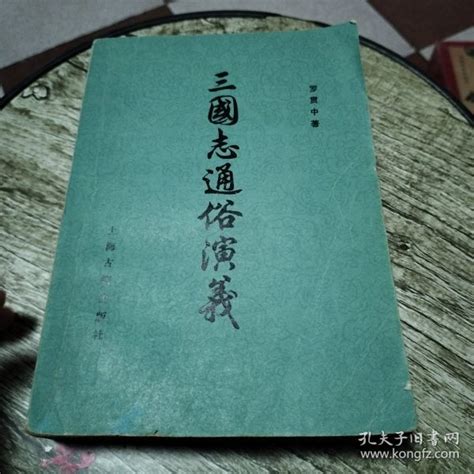 罗贯中著
三國志通俗演義
上海古籍出版社
孔夫子旧书网
www.kongfz.com